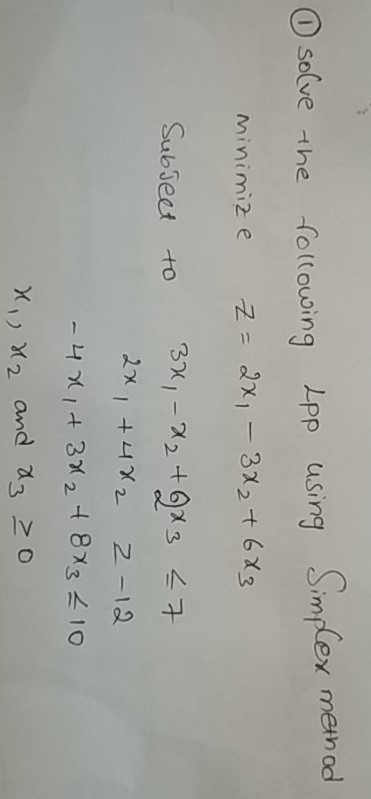 ① solve the following Lpp using Simplex method
minimize Z = 2x₁ - 3x₂ + 6x₃
Subject to 3x₁ - x₂ + 2x₃ ≤ 7
2x₁ + 4x₂ ≥ -12
-4x₁ + 3x₂ + 8x₃ ≤ 10
x₁, x₂ and x₃ ≥ 0